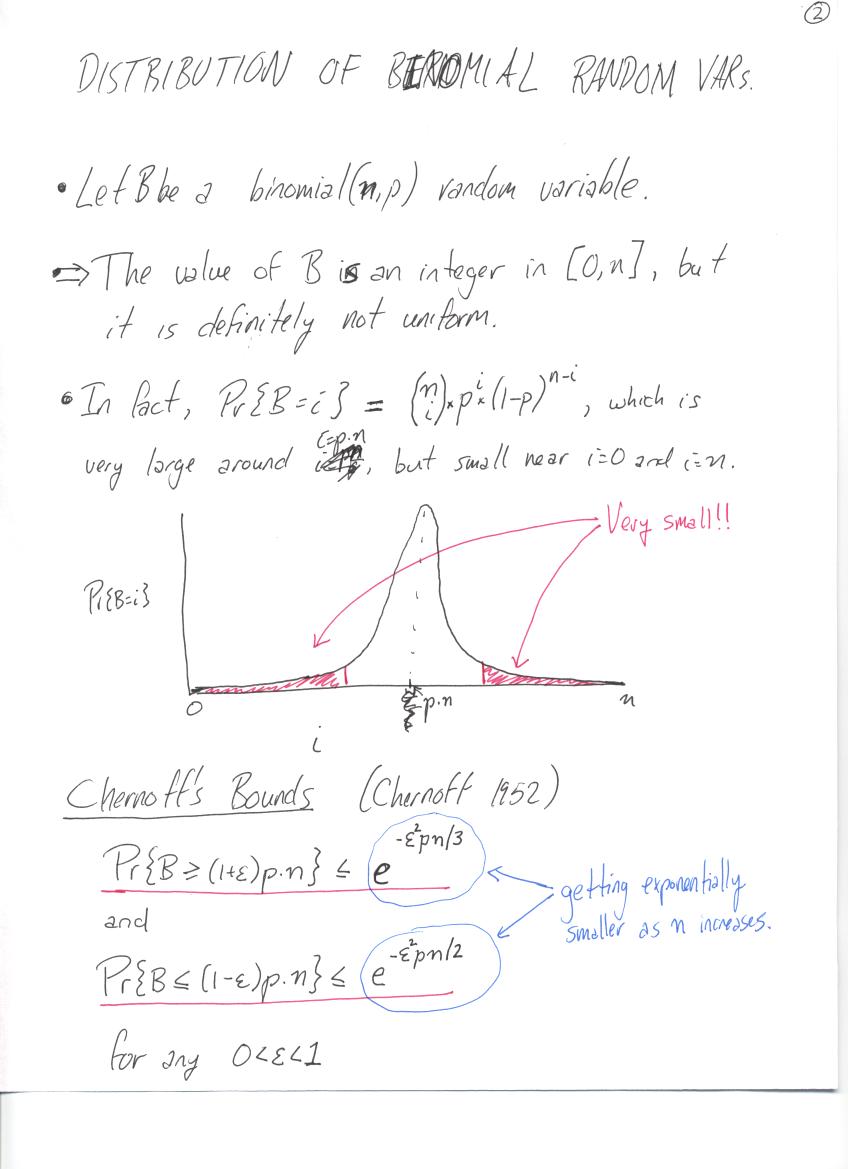 2
DISTRIBUTION OF BINOMIAL RANDOM VARS.
• Let B be a binomial(n,p) random variable.
⇒ The value of B is an integer in [0,n], but
it is definitely not uniform.
• In fact, Pr{B=i} = (n i) × p^i × (1-p)^{n-i}, which is
i=p·n
very large around , but small near i=0 and i=n.
Very small!!
Pr{B=i}
0
p·n
n
i
Chernoff's Bounds (Chernoff 1952)
Pr{B ≥ (1+ε)p·n} ≤ e^{-ε²pn/3}
getting exponentially
smaller as n increases.
and
Pr{B ≤ (1-ε)p·n} ≤ e^{-ε²pn/2}
for any 0<ε<1